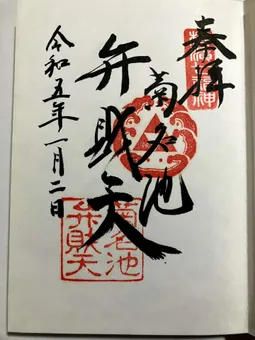 奉拝
菊名池
弁財天
令和五年一月二日
菊名池
弁財天